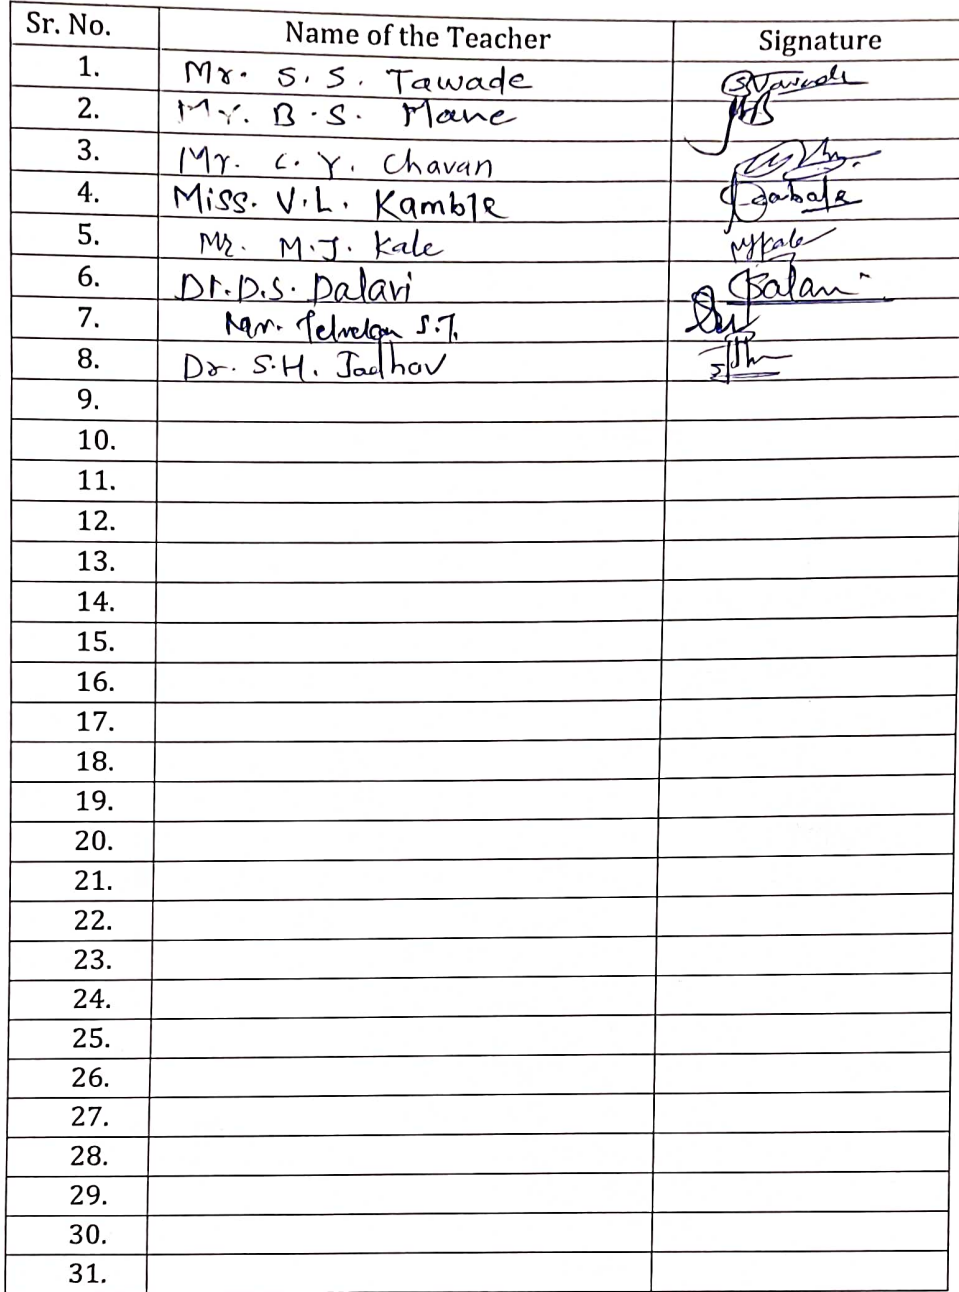 Sr. No. Name of the Teacher Signature
1. Mr. S. S. Tawade STawade
2. Mr. B. S. Mane
3. Mr. C. Y. Chavan
4. Miss. V. L. Kamble
5. Mr. M. J. Kale mjkale
6. Dr. D. S. Dalavi
7. S. J.
8. Dr. S. H. Jadhav
9.
10.
11.
12.
13.
14.
15.
16.
17.
18.
19.
20.
21.
22.
23.
24.
25.
26.
27.
28.
29.
30.
31.